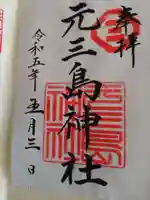 奉拝
元三島神社
令和五年五月三日